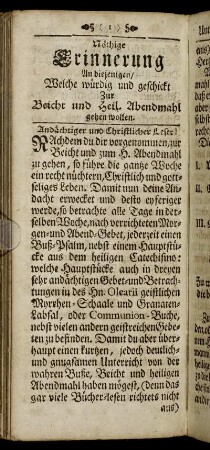 ( 1 )
Nöthige
Erinnerung
An diejenigen/
Welche würdig und geschickt
Zur
Beicht und Heil. Abendmahl
gehen wollen.
Andächtiger und Christlicher Leser!
NAchdem du dir vorgenommen, zur
Beicht und zum H. Abendmahl
zu gehen, so führe die gantze Woche
ein recht nüchtern, Christlich und gott-
seliges Leben. Damit nun deine An-
dacht erwecket und desto eyferiger
werde, so betrachte alle Tage in der-
selben Woche, nach verrichteten Mor-
gen- und Abend-Gebet, jederzeit einen
Buß-Psalm, nebst einem Hauptstü-
cke aus dem heiligen Catechismo:
welche Hauptstücke auch in dreyen
sehr andächtigen Gebet- und Betrach-
tungen in des Hn. Olearii geistlichen
Myrrhen- Schaale und Granaten-
Labsal, oder Communion-Buche,
nebst vielen andern geistreichen Gebe-
ten zu befinden. Damit du aber über-
haupt einen kurtzen, jedoch deutlich-
und gnugsamen Unterricht von der
wahren Buße, Beicht und heiligen
Abendmahl haben mögest, (denn das
gar viele Bücher-lesen richtets nicht
aus)